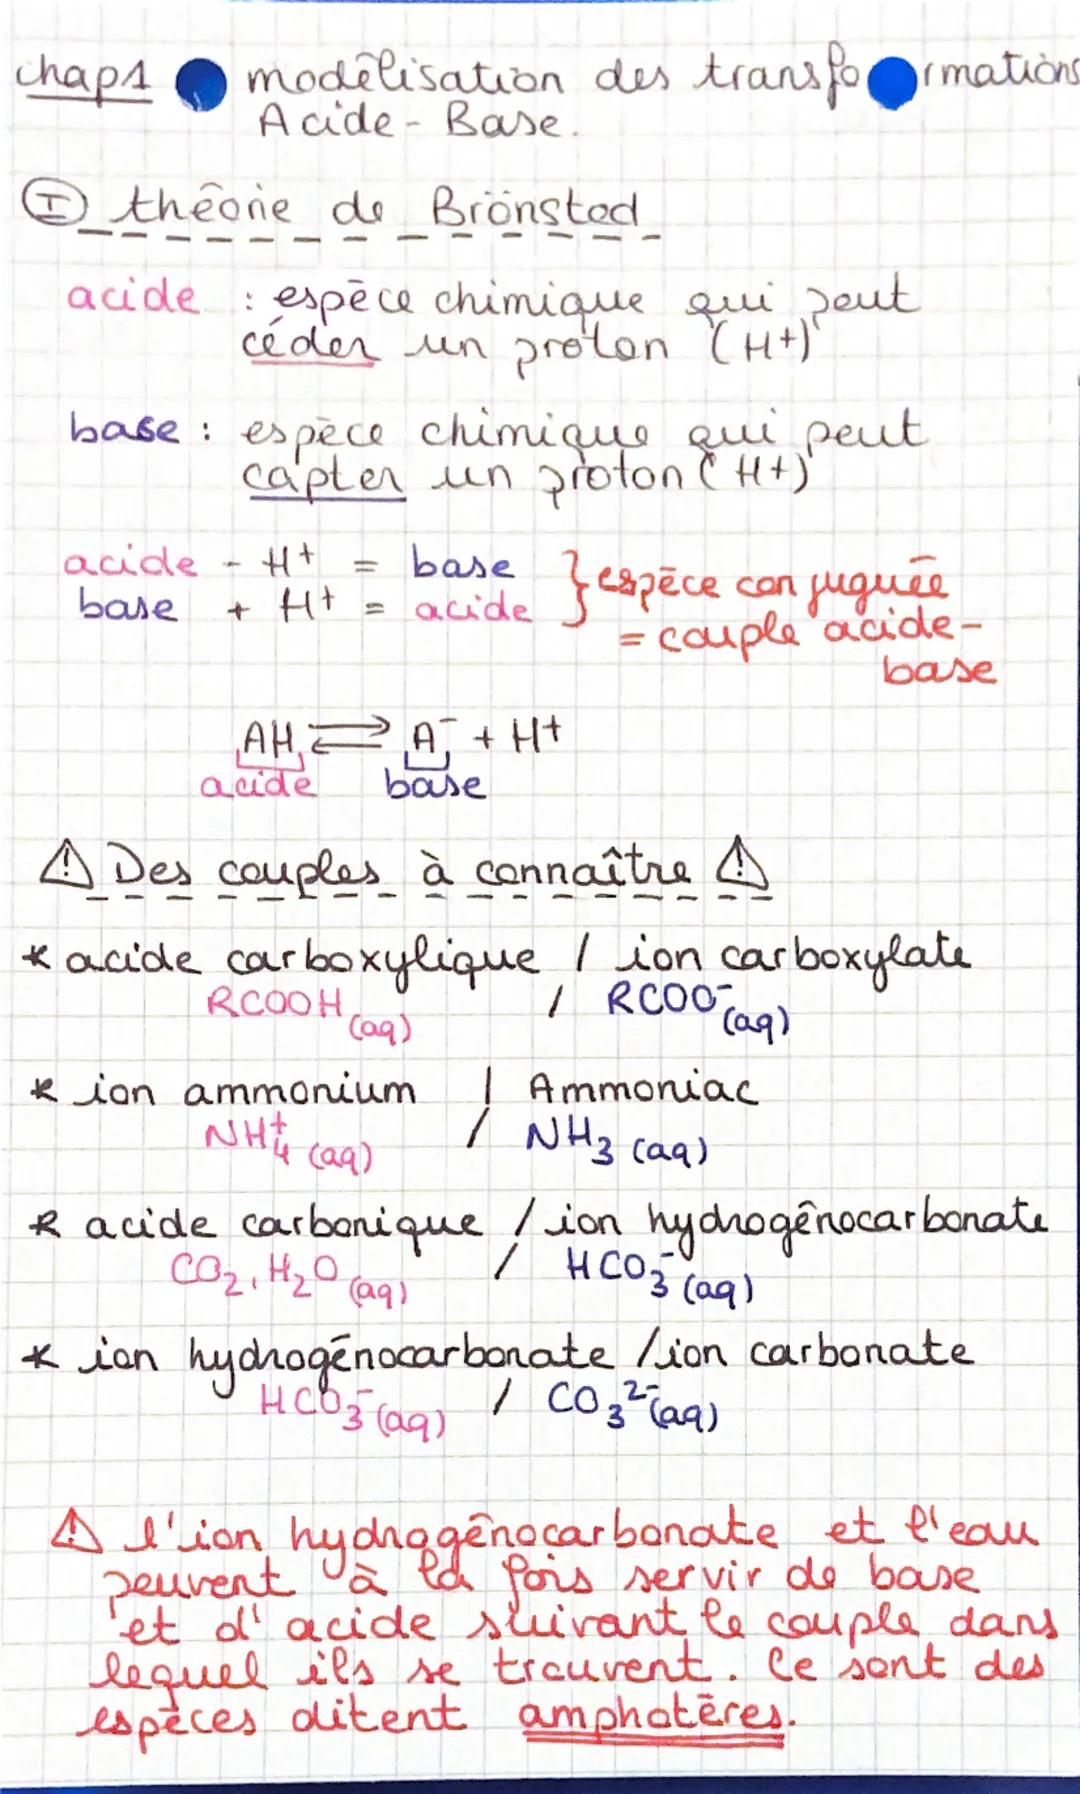 chap1 modélisation des transformations
Acide-Base.
I théorie de Brönsted
acide : espèce chimique qui peut
céder un proton (H+)
base : espèce chimique qui peut
capter un proton (H+)
acide - H+ = base
base + H+ = acide
} espèce conjuguée
= couple acide-
base
AH ⇌ A⁻ + H+
acide base
⚠ Des couples à connaître ⚠
* acide carboxylique / ion carboxylate
RCOOH (aq) / RCOO⁻ (aq)
* ion ammonium / Ammoniac
NH₄⁺ (aq) / NH₃ (aq)
* acide carbonique / ion hydrogénocarbonate
CO₂, H₂O (aq) / HCO₃⁻ (aq)
* ion hydrogénocarbonate / ion carbonate
HCO₃⁻ (aq) / CO₃²⁻ (aq)
⚠ l'ion hydrogénocarbonate et l'eau
peuvent à la fois servir de base
et d'acide suivant le couple dans
lequel ils se trouvent. Ce sont des
espèces ditent amphotères.